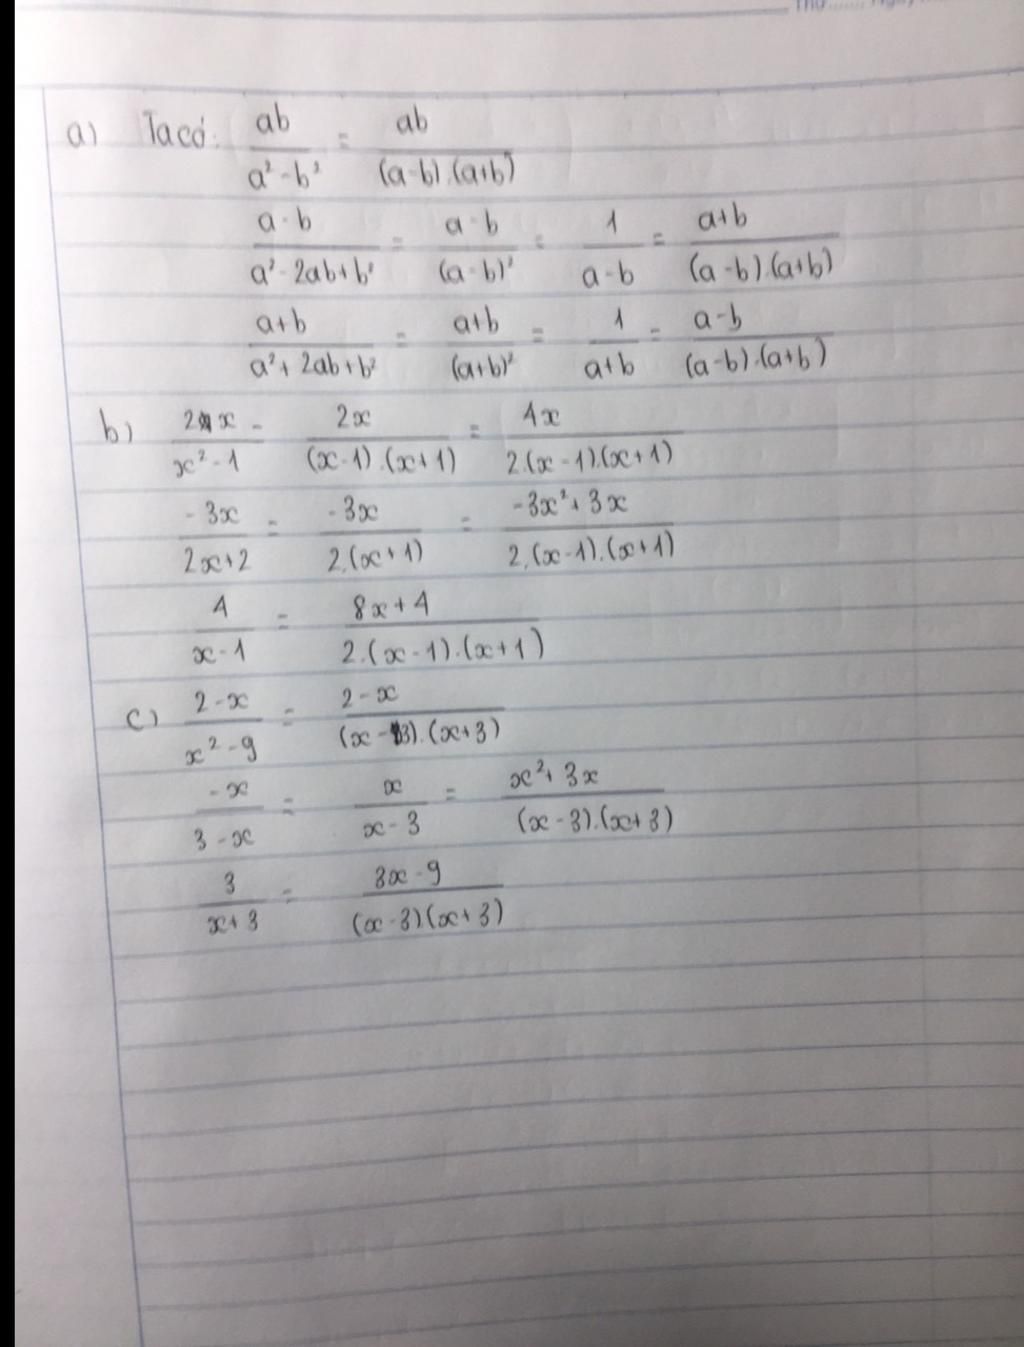 a) Ta có: ab/(a² - b²) = ab/((a-b).(a+b))
(a - b)/(a² - 2ab + b²) = (a - b)/(a - b)² = 1/(a - b) = (a+b)/((a-b).(a+b))
(a+b)/(a² + 2ab + b²) = (a+b)/(a+b)² = 1/(a+b) = (a-b)/((a-b).(a+b))
b) 2x/(x² - 1) = 2x/((x-1).(x+1)) = 4x/(2.(x-1).(x+1))
-3x/(2x+2) = -3x/(2.(x+1)) = (-3x² + 3x)/(2.(x-1).(x+1))
4/(x-1) = (8x+4)/(2.(x-1).(x+1))
c) (2-x)/(x² - 9) = (2-x)/((x-3).(x+3))
-x/(3-x) = x/(x-3) = (x² + 3x)/((x-3).(x+3))
3/(x+3) = (3x-9)/((x-3)(x+3))